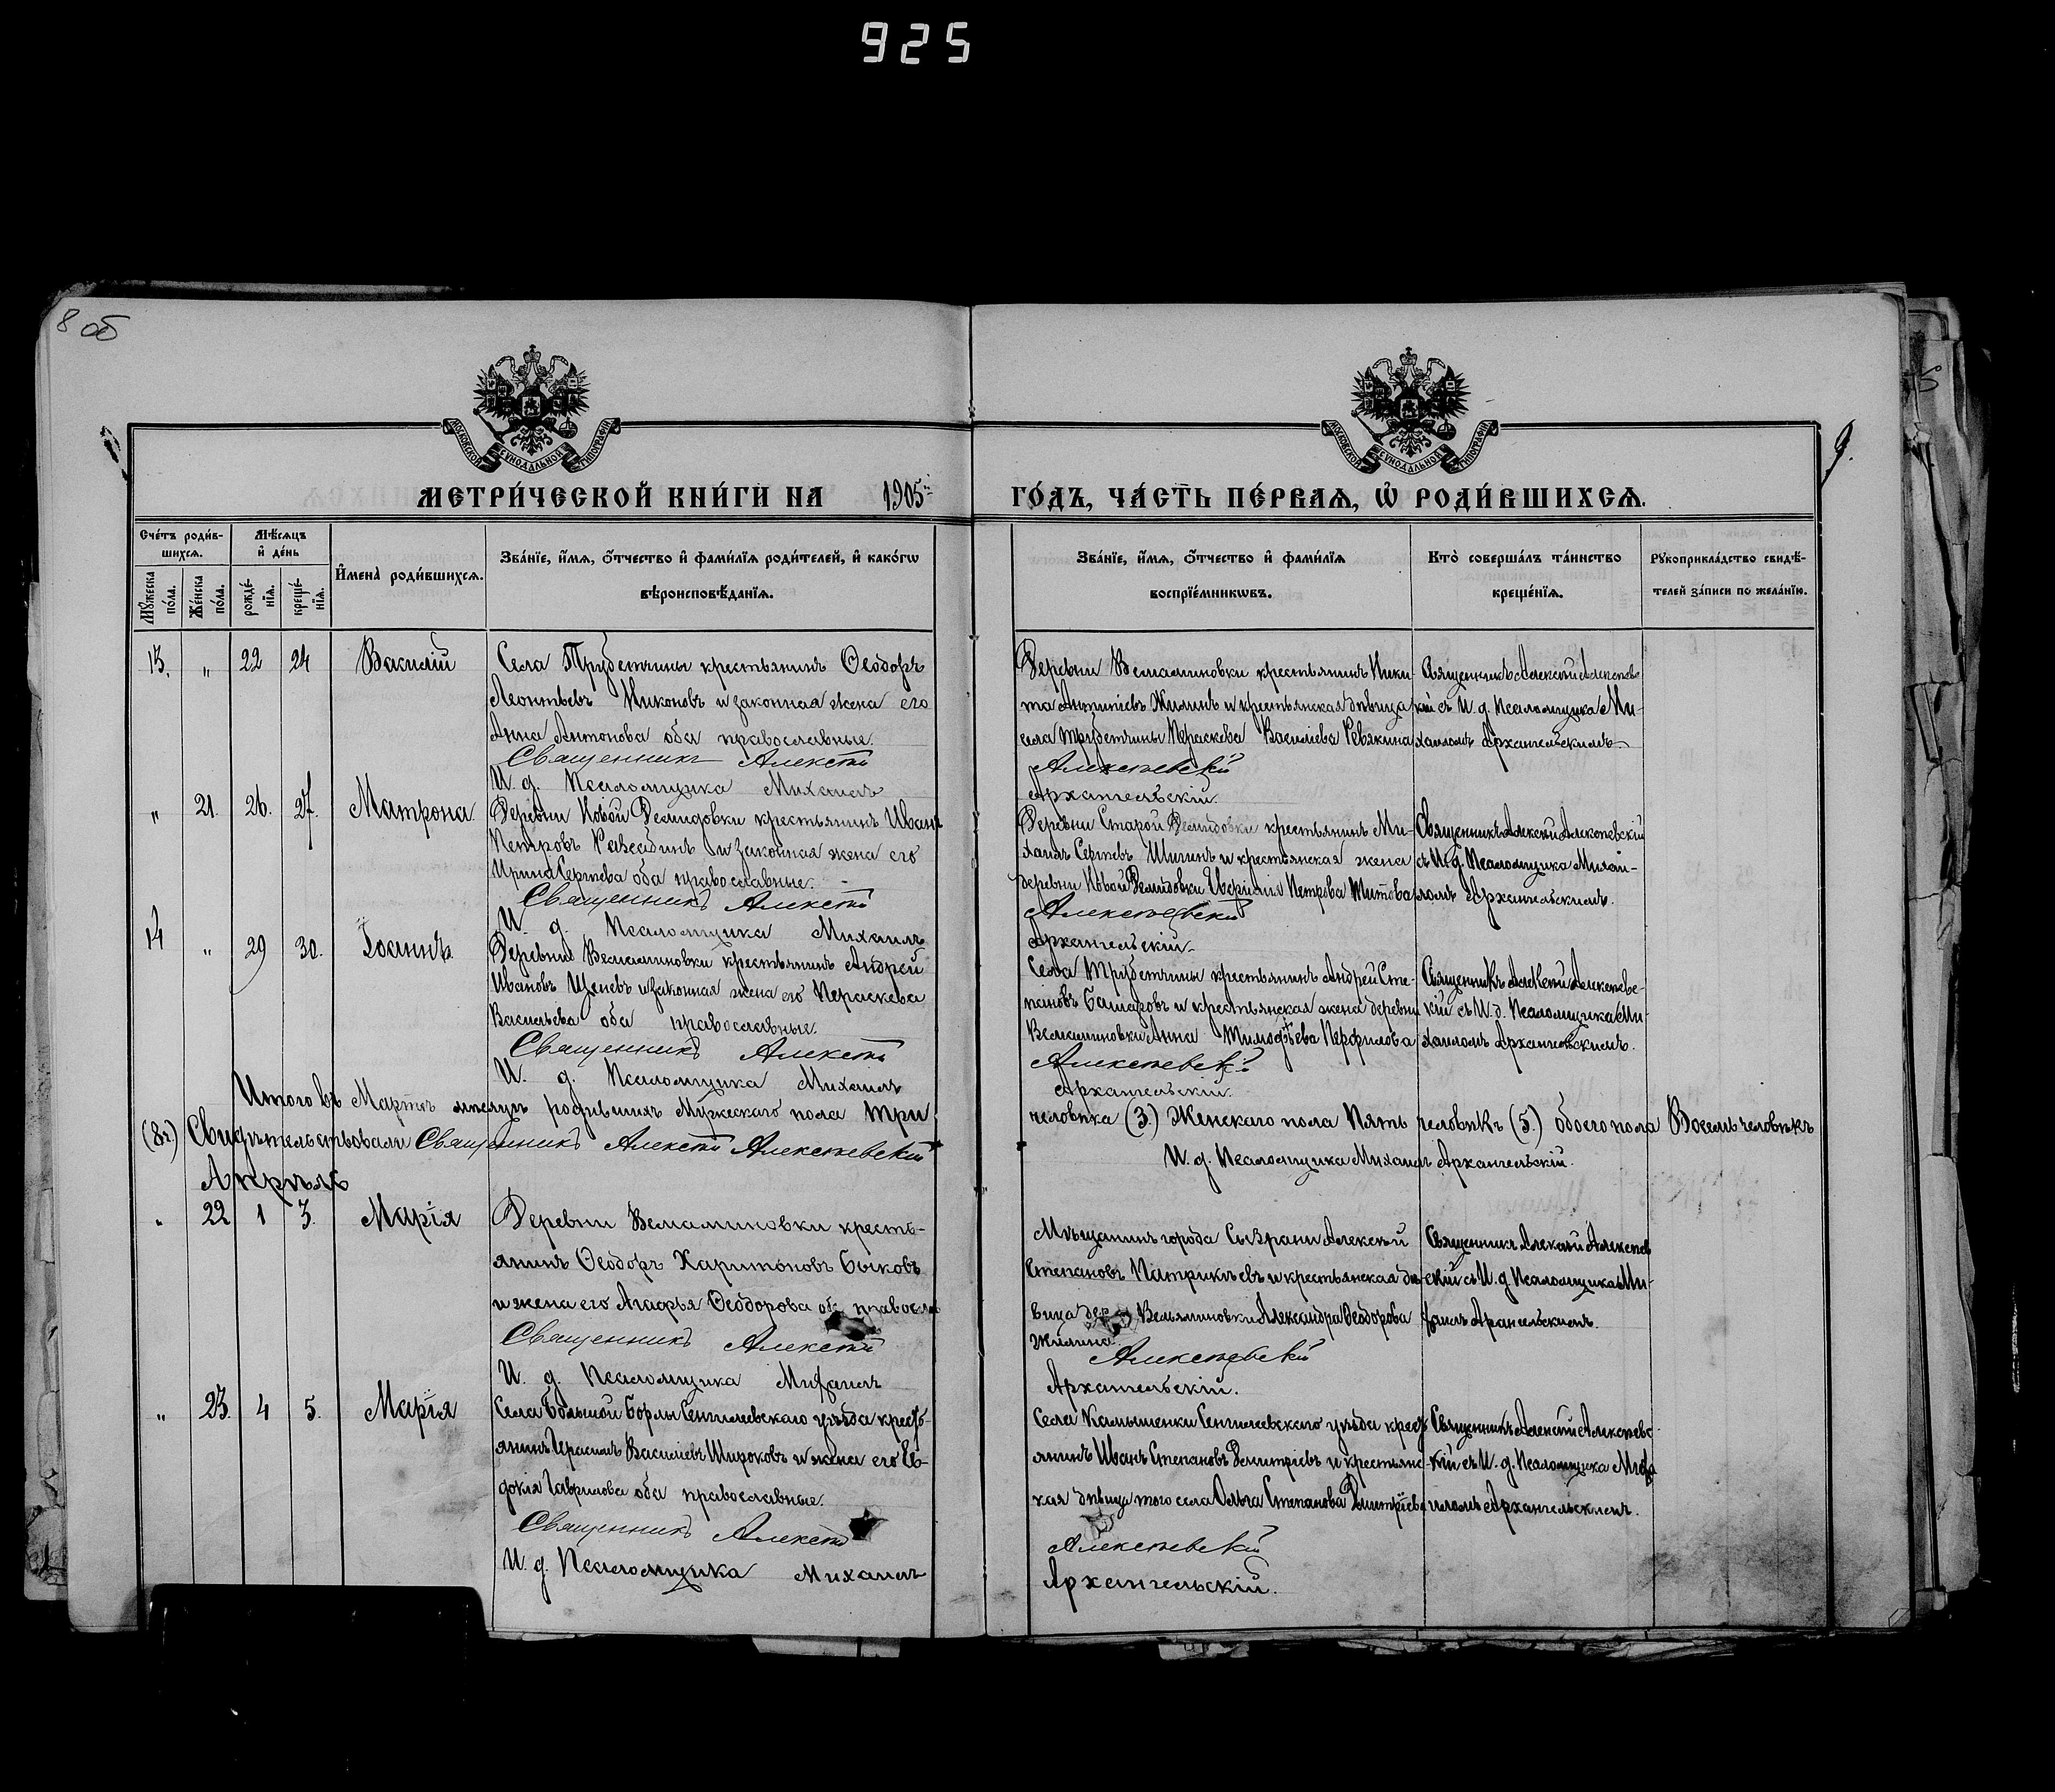 925
8 об
9.
МОСКОВСКОЙ СУНОДАЛЬНОЙ ТИПОГРАФІИ
МОСКОВСКОЙ СУНОДАЛЬНОЙ ТИПОГРАФІИ
МЕТРИ́ЧЕСКОЙ КНИ́ГИ НА 1905й ГО́ДЪ, ЧА́СТЬ ПЕ́РВАѦ, Ѡ҆ РОДИ́ВШИХСѦ.
Сче́тъ роди́в-
шихсѧ.
Мѣ́сѧцъ
и҆ де́нь
Мꙋ́жеска по́ла.
Же́нска по́ла.
рожде́-
нїѧ.
креще́-
нїѧ.
И҆мена̀ роди́вшихсѧ.
Зва́нїе, и҆́мѧ, ѻ҆́тчество и҆ фами́лїѧ роди́телей, и҆ како́гѡ
вѣроисповѣ́данїѧ.
Зва́нїе, и҆́мѧ, ѻ҆́тчество и҆ фами́лїѧ
воспрїе́мникѡвъ.
Кто̀ соверша́лъ та́инство
креще́нїѧ.
Рꙋкоприкла́дство свидѣ́-
телей за́писи по жела́нїю.
13. " 22 24 Василій
Села Трубетчины крестьянинъ Ѳеодоръ
Леонтьевъ Никоновъ и законная жена его
Анна Антонова оба православные.
Священникъ Алексѣй
И. д. Псаломщика Михаилъ
Деревни Вельяминовки крестьянинъ Ники-
та Антипіевъ Жилинъ и крестьянская дѣвица
села Трубетчины Параскева Василіева Ревякина
Алексѣевскій
Архангельскій.
Священникъ Алексѣй Алексѣевс
кій съ И. д. Псаломщика Ми-
хаиломъ Архангельскимъ
" 21. 26. 27. Матрона
Деревни Новой Демидовки крестьянинъ Иванъ
Петровъ Разсадинъ и законная жена его
Ирина Сергѣева оба православные.
Священникъ Алексѣй
И. д. Псаломщика Михаилъ
Деревни Старой Демидовки крестьянинъ Ми-
хаилъ Сергѣевъ Шигинъ и крестьянская жена
деревни Новой Демидовки Петрова Титова
Алексѣевскій
Архангельскій.
Священникъ Алексѣй Алексѣевскій
съ И. д. Псаломщика Михаи-
ломъ Архангельскимъ.
14 " 29 30. Іоаннъ
Деревни Вельяминовки крестьянинъ Андрей
Ивановъ Щеневъ и законная жена его Параскева
Васильева оба православные.
Священникъ Алексѣй
И. д. Псаломщика Михаилъ
Села Трубетчины крестьянинъ Андрей Сте-
пановъ Башаровъ и крестьянская жена деревни
Вельяминовки Анна Тимофѣева Перфилова
Алексѣевскій
Архангельскій.
Священникъ Алексѣй Алексѣевс-
кій съ И. д. Псаломщика Ми-
хаиломъ Архангельскимъ.
Итого въ Мартѣ мѣсяцѣ родившихъ Мужескаго пола три
человѣка (3.) Женскаго пола Пять человѣкъ (5.) обоего пола Восемь человѣкъ
(8.) Свидѣтельствовали Священникъ Алексѣй Алексѣевскій
И. д. Псаломщика Михаилъ Архангельскій.
Апрѣль
" 22 1 3. Марія
Деревни Вельяминовки кресть-
янинъ Ѳеодоръ Харитоновъ Быковъ
и жена его Агафья Ѳеодорова оба правосл
Священникъ Алексѣй
И. д. Псаломщика Михаилъ
Мѣщанинъ города Сызрани Алексѣй
Степановъ Патрикѣевъ и крестьянская дѣ-
вица дер Вельяминовки Александра Ѳеодорова
Жилина.
Алексѣевскій
Архангельскій.
Священникъ Алексѣй Алексѣев
скій съ И. д. Псаломщика Ми-
хаилъ Арангельскимъ.
" 23. 4 5. Марія
Села Большой Борлы Сенгилеевскаго уѣзда крест-
янинъ Герасимъ Василіевъ Широковъ и жена его Ев-
докія Гаврилова оба православные.
Священникъ Алексѣй
И. д. Псаломщика Михаилъ
Села Камышенки Сенгилеевскаго уѣзда крест
янинъ Иванъ Степановъ Димитріевъ и крестьянс
кая дѣвица того села Ольга Степанова Димитріева
Алексѣевскій
Архангельскій.
Священникъ Алексѣй Алексѣевс
кій съ И. д. Псаломщика Миха
иломъ Архангельскимъ.